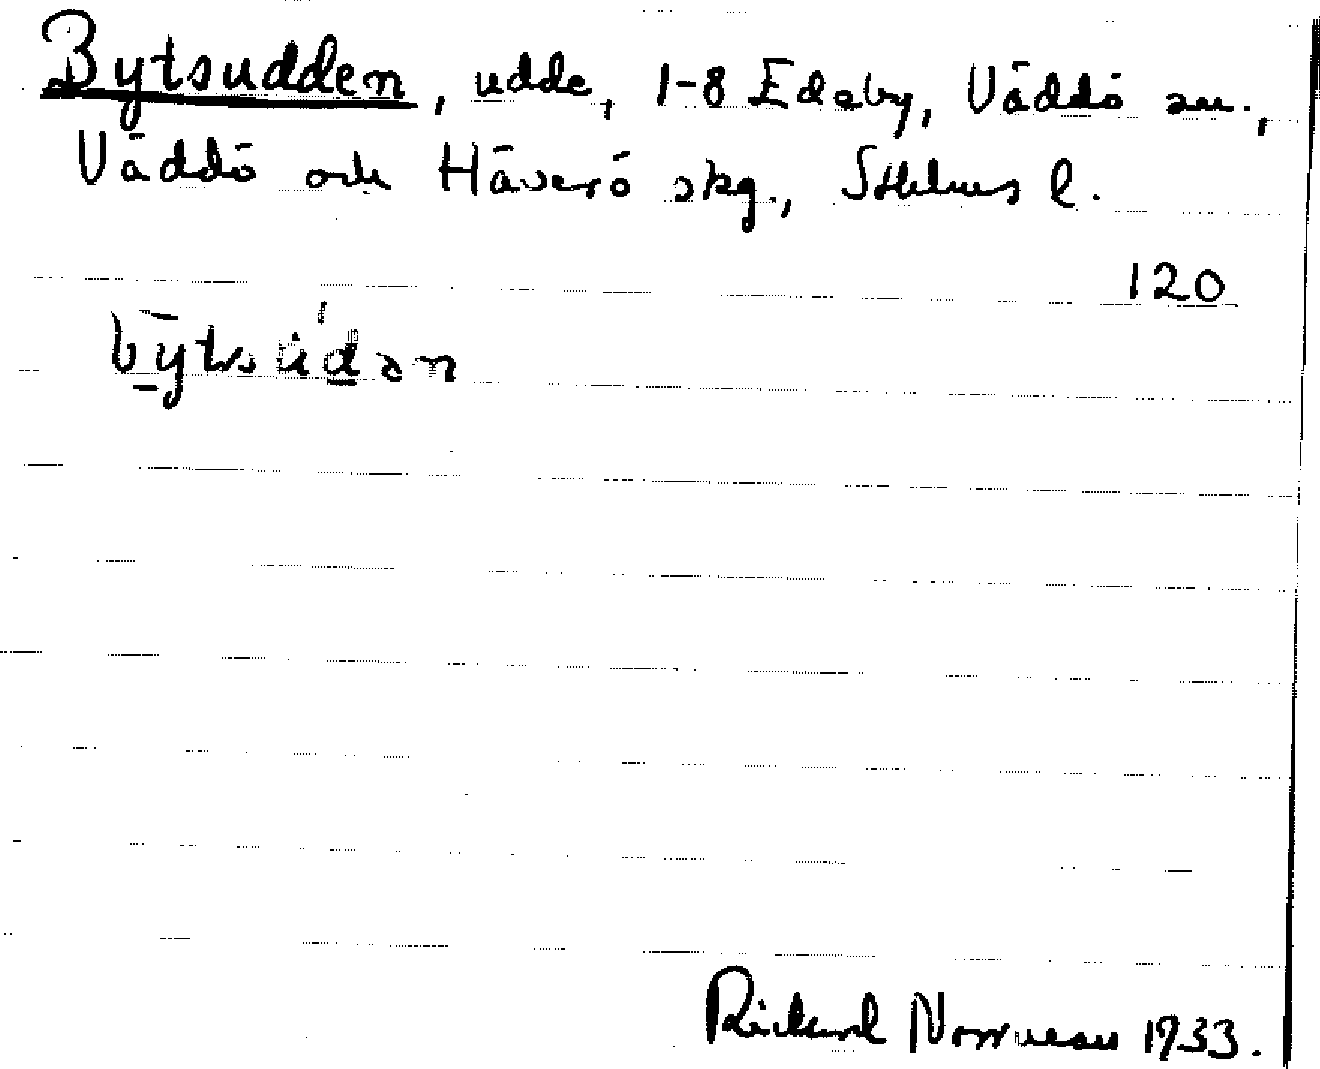 Bytsudden, udde, 1-8 Edeby, Väddö sn.,
Väddö och Häverö skg., Sthlms l.
120
Rickard Norrman 1933.